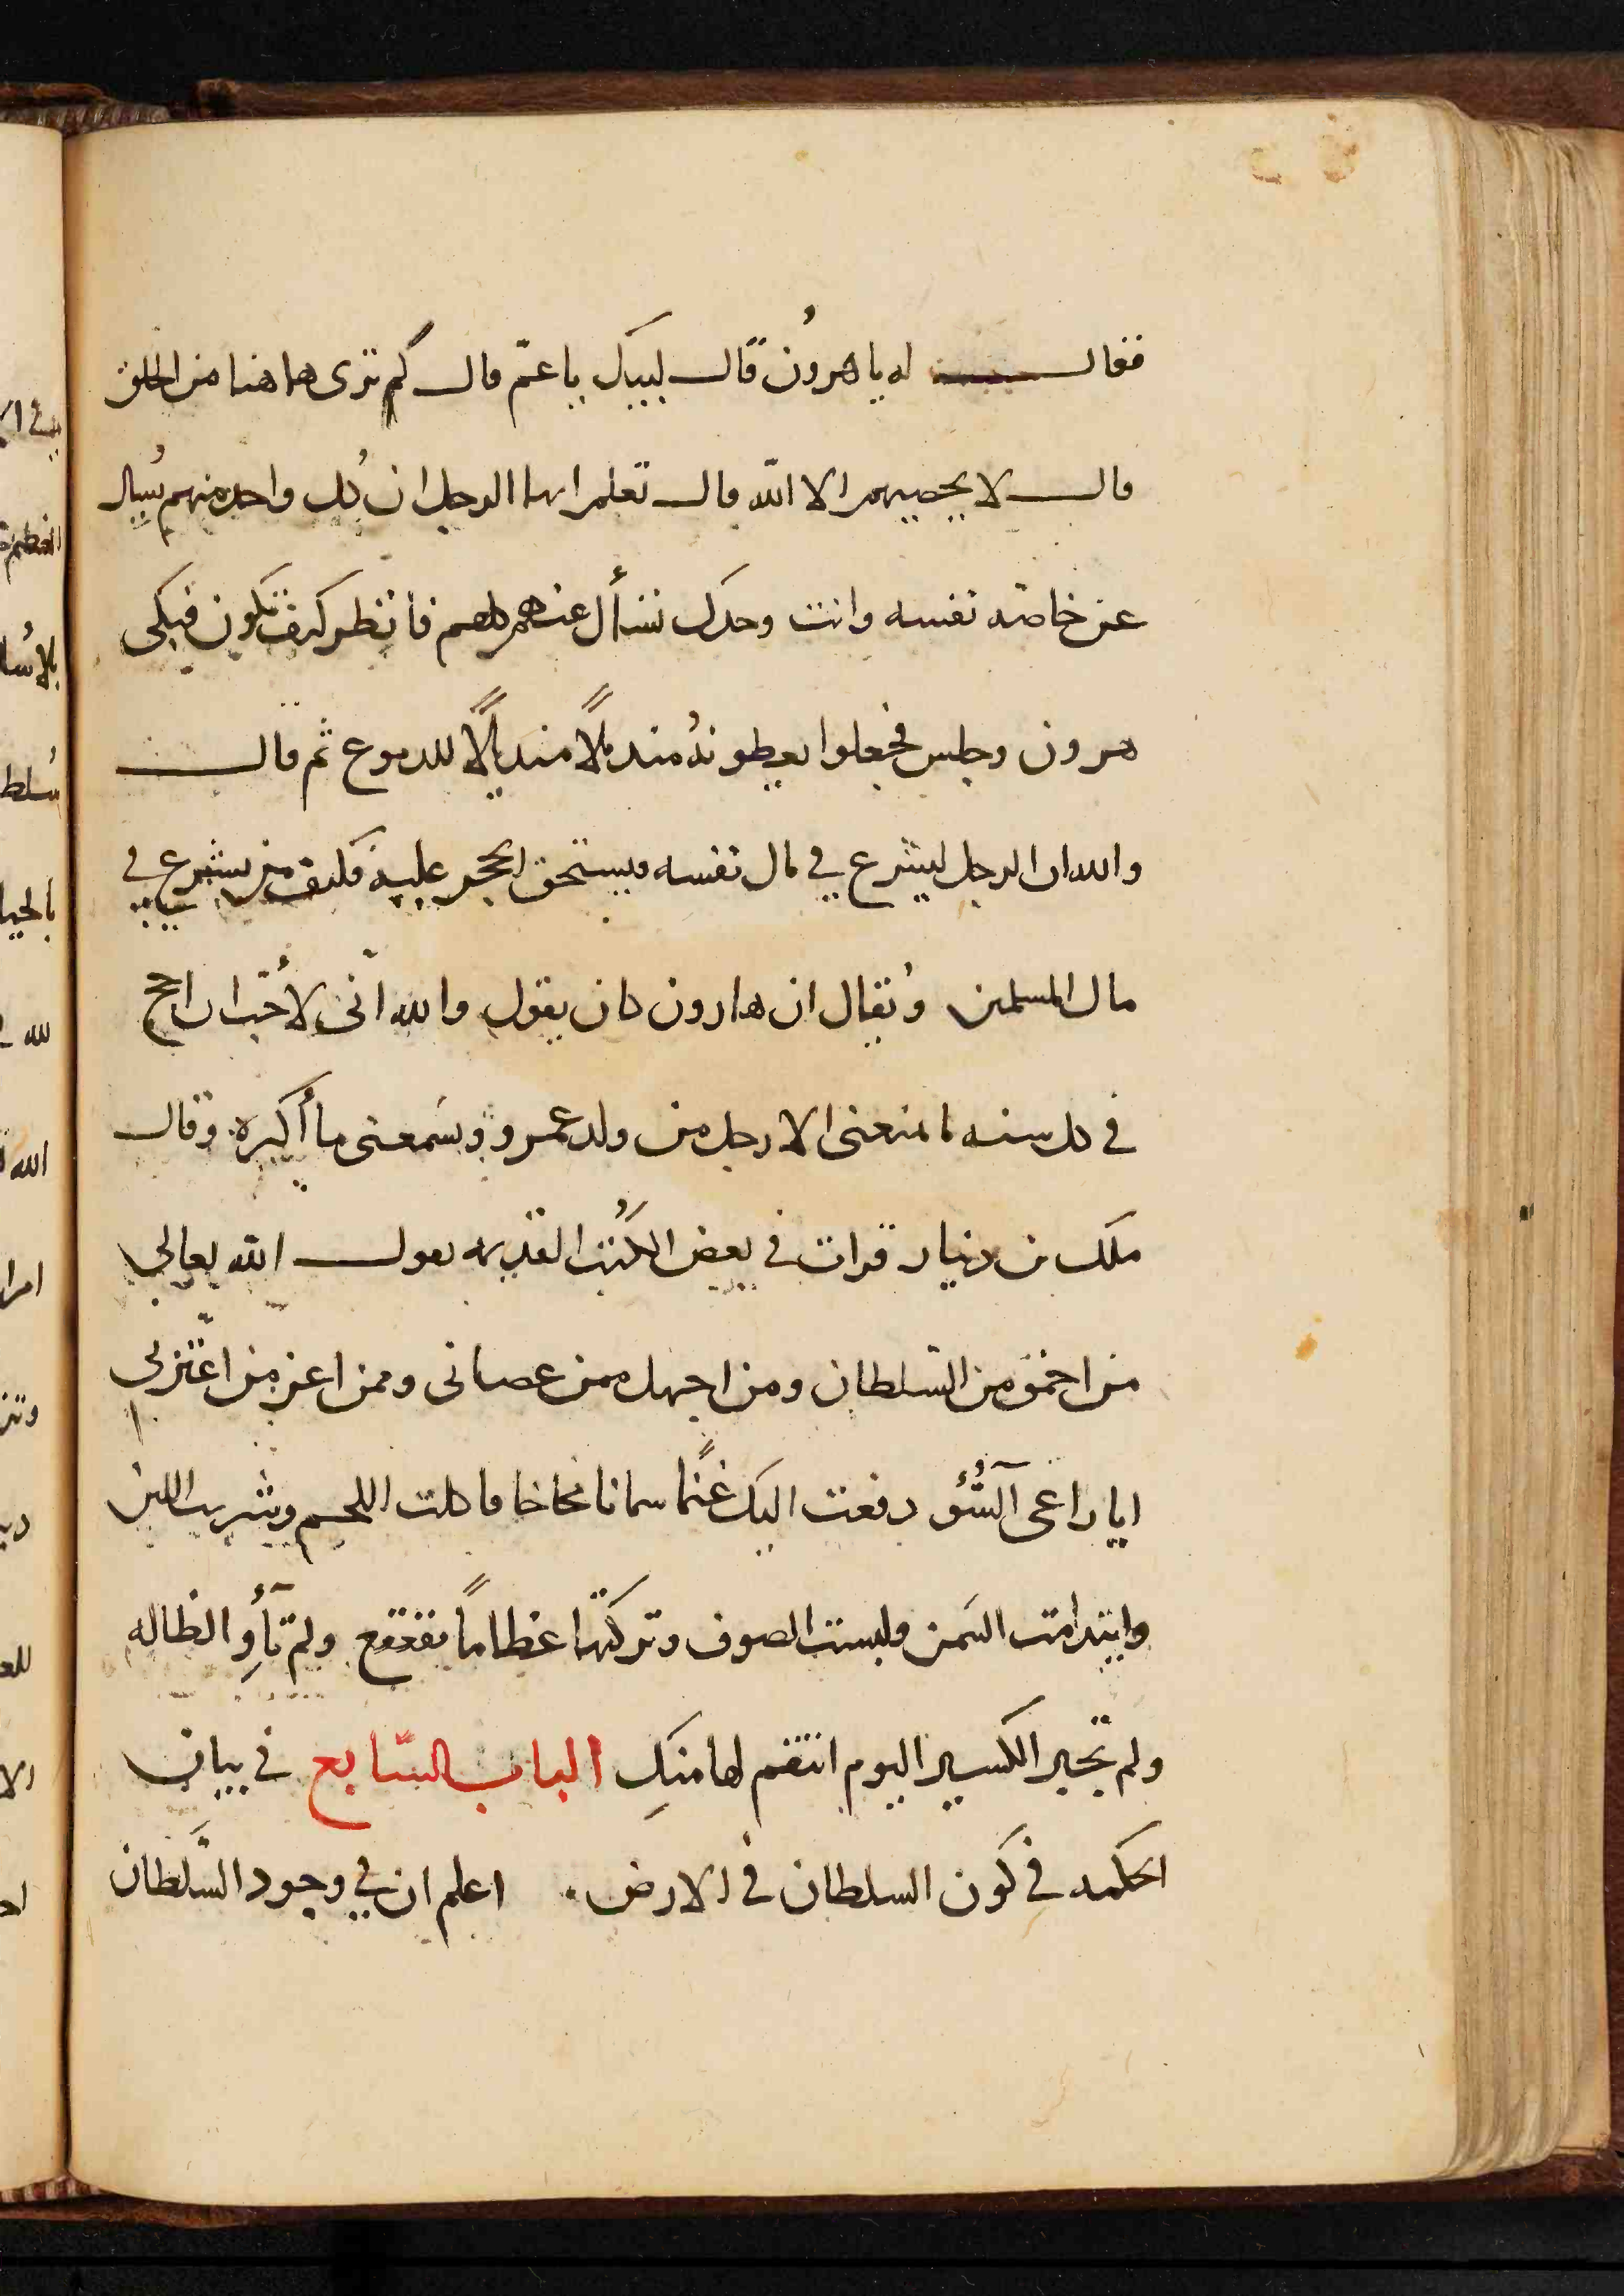 فقال له يا هرون قال لبيك يا عم قال كم ترى هاهنا من الخلق
قال لا يحصيهم الا الله قال تعلم ايها الرجل ان كل واحد منهم يُسال
عن خاصه نفسه وانت وحدك تسأل عنهم كلهم فانظر كيف تكون فبكى
هرون وجلس فجعلوا يعطونهُ منديلاً منديلاً للدموع ثم قال
والله ان الرجل ليشرع في مال نفسه فيستحق الحجر عليه فكيف من يشرع في
مال المسلمين ويُقال ان هارون كان يقول والله انّى لأحُبّ ان احج
في كل سنه ما منعنى الا رجل من ولد عمر ويسَمعنى ما أكره وقال
ملك بن دينار قرات في بعض الكُتب القديمه يقول الله تعالى
من احمق من السّلطان ومن اجهل ممن عصانى وممن اعز من اعتّز بى
ايا راعى السُّوء دفعت اليك غنمًا سمانا صحاحا فاكلت اللحم وشربت اللبن
وايتدامت السَمن ولبست الصوف وتركتها عظاماً تقعقع ولم تأوِ الضاله
ولم تجبر الكسير اليوم انتقم لها منكِ الباب السّابع في بيان
الحكمه في كون السلطان في الارض اعلم ان في وجود السَّلطان